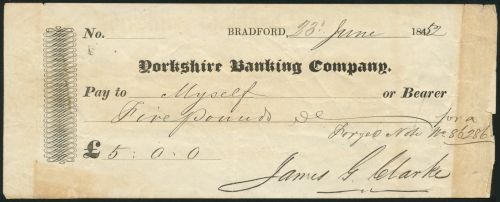 No. BRADFORD, 23d June 1852
Yorkshire Banking Company.
Pay to Myself or Bearer
Five pounds for a
Forged Note No. 86286
£ 5:0:0
James G. Clarke